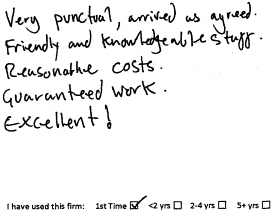 Very punctual, arrived as agreed.
Friendly and knowledgeable stuff.
Reasonable costs.
Guaranteed work.
Excellent!
I have used this firm: 1st Time ☑ <2 yrs ☐ 2-4 yrs ☐ 5+ yrs ☐